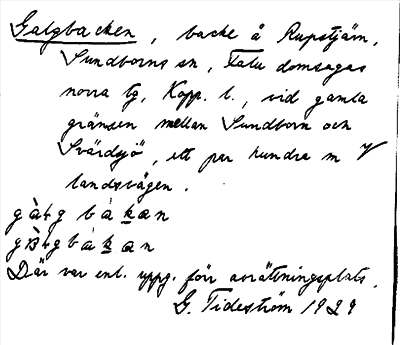 Galgbacken, backe å Rupstjärn,
Sundborns sn, Falu domsagas
norra tg, Kopp. l., vid gamla
gränsen mellan Sundborn och
Svärdsjö, ett par hundra m V
landsvägen.
g b à k a n
g b à k a n
Där var enl. uppg. förr avrättningsplats.
G. Tideström 1929